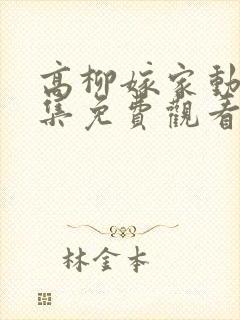 高柳嫁家動
集免費觀看
林金本